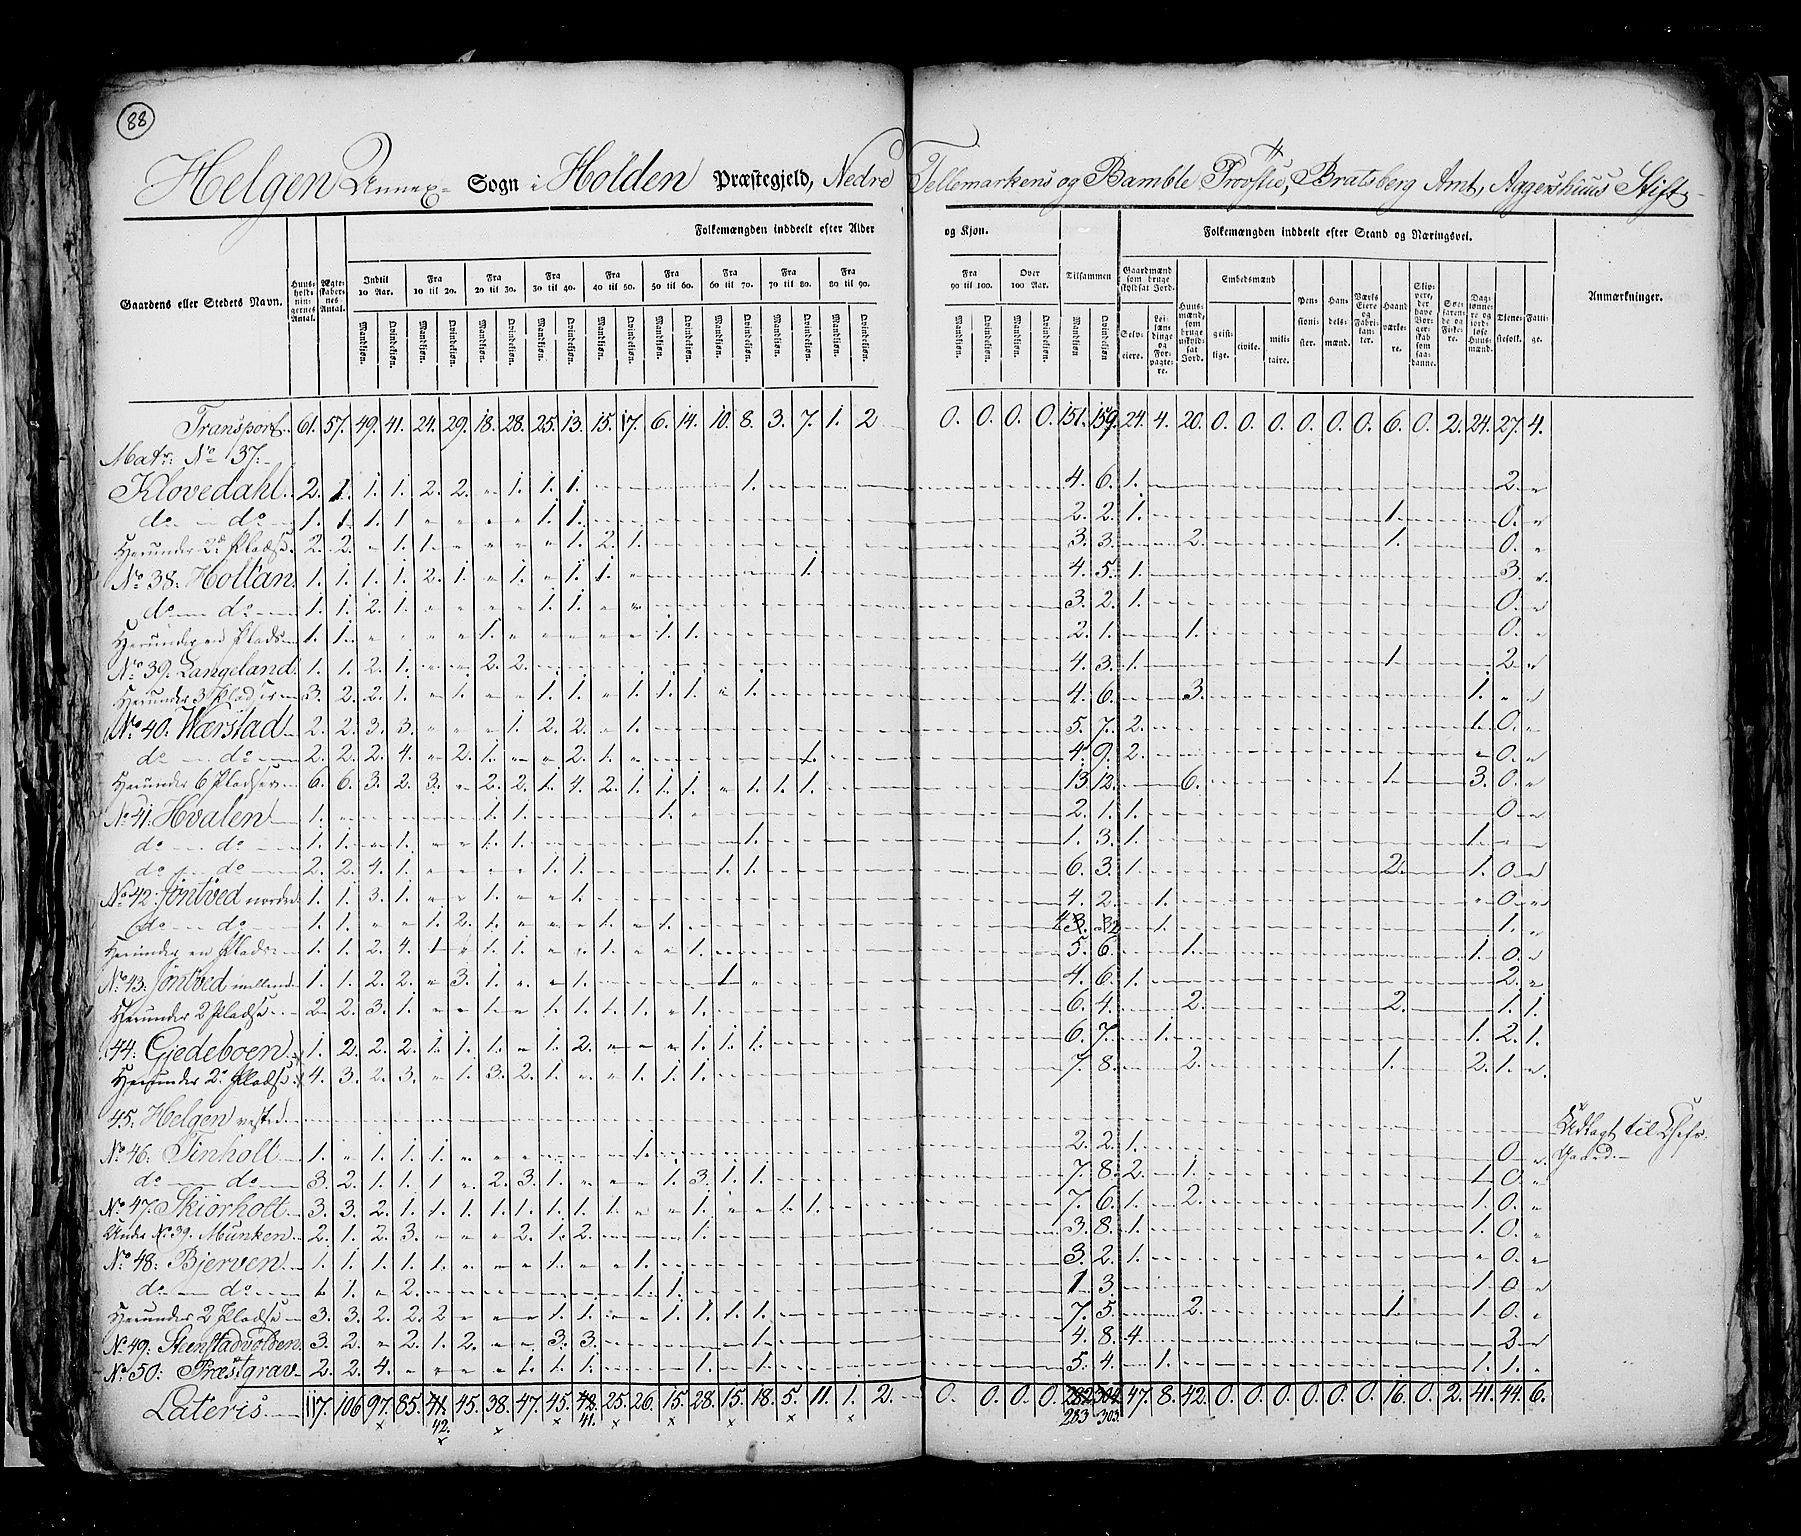 88
Helgen Annex- Sogn i Holden Præstegjeld, Nedre Tellemarkens og Bamble Provstie, Bratsberg Amt, Aggershuus Stift
Gaardens eller Stedets Navn. Huus-holdnin-gernes Antal. Ægte-skaber-nes Antal. Folkemængden inddeelt efter Alder og Kjøn. Tilsammen Folkemængden inddeelt efter Stand og Næringsvei. Anmærkninger.
Indtil 10 Aar. Fra 10 til 20. Fra 20 til 30. Fra 30 til 40. Fra 40 til 50. Fra 50 til 60. Fra 60 til 70. Fra 70 til 80. Fra 80 til 90. Fra 90 til 100. Over 100 Aar.
Mandkjøn. Qvindekjøn.
Gaardmænd som bruge skyldsat Jord. Selv-eiere. Lei-lændinge og For-pagtere. Huus-mænd, som bruge uskyldsat Jord. Embedsmænd geist-lige. civile. mili-taire. Pen-sioni-ster. Han-dels-mænd. Værks Eiere og Fabri-kan-ter. Haand værke-re. Skip-pere, der have Bor-ger-skab som saa-danne. Søe-farende og Fiske-re. Dag-lønne-re og jord-løse Huus-mænd. Tiene-stefolk. Fatti-ge.
Transport 61. 57. 49. 41. 24. 29. 18. 28. 25. 13. 15. 17. 6. 14. 10. 8. 3. 7. 1. 2 0. 0. 0. 0. 151. 159. 24. 4. 20. 0. 0. 0. 0. 0. 0. 6. 0. 2. 24. 27. 4.
Matr: No 137:
Klovedahl 2. 1. 1. 1. 2. 2. " 1. 1. 1. 1. 4. 6. 1. 2. "
do do 1. 1. 1. 1 " " " " 1. 1. 2. 2. 1. 1. 0. "
Herunder 2de Pladse. 2. 2. " 1. 1. " " " " 1. 2. 1. 3. 3. 2. 1. 0. "
No 38: Holtan 1. 1. 1. 1. 2. 1. " 1. " 1. 1. " 1. 4. 5. 1. 3. "
do do 1. 1. 2. 1. " " " " 1. 1. " " 3. 2. 1. 0. "
Herunder en Plads 1. 1. " " " " 1. " " " " " 1. 1. 2. 1. 1. 0. "
No 39. Langeland. 1. 1. 2. 1. " " 2. 2. 4. 3. 1. 1. 2. "
Herunder 3 Pladser 3. 2. 2. 1. " 1. " " 1. 1. " 1. 1. 1. " 1. 4. 6. 3. 1. " "
No 40: Wærstad 2. 2. 3. 3. " " " 1. 2. 2. " 1. 5. 7. 2. 1. 0. "
do do 2. 2. 2. 4. " 2. 1. " " 2. 1. " 1. 4. 9. 2. " 0. "
Herunder 6 Pladser 6. 6. 3. 2. 3. " 2. 2. 1. 4. 2. 1. 1. 1. " 1. 1. 1. 13. 12. 6. 1. 3. 0. "
No 41: Hvalen 1. " 1. 1. 1. 2. 1. 1. 0. "
do do 1. 1. " 1. " " 1. 1. 1. 1. 3. 1. 1. " "
do do 2. 2. 4. 1. " " " " 1. 1. 1. 1. 6. 3. 1. 2. 1. 0. "
No 42: Jøntved nordre 1. 1. 3. 1. " " 1. " " 1. 4. 2. 1. " 0. "
do do 1. 1. " " 1. 2. 1. " " " 1. " 1. 1. 1. "
Herunder en Plads 1. 1. 2. 4. 1 " 1. 1. " " 1. " " 1. 5. 6. 1. 1. 0. "
No 43: Jøntved mellem 1. 1. 2. 2. " 3. 1. " " 1. 1. 4. 6. 1. 2. "
Herunder 2 Pladse 2 2. 3. 1. " " 1. " 1. 1. 1. 1. " 1. 6. 4. 2. 2. 1. 1.
44: Gjedeboen 1. 2. 2. 2. 1. 1. 1. " 1. 2. " " " 1. 1. 1. 6. 7. 1. 1. 2. 1.
Herunder 2de Pladse 4. 3. 2. 3. " 1. 3. 2. 1. " " 1. 1. 1. 7. 8. 2. 1. 2. 1. "
45: Helgen vestre Udlagt til Chefs-
Gaard.
No 46: Tinholt 1. " 1. 1. 1. 1. 2. 2. 1. 0. "
do do 3. 2. 1. 1. 1 " 2. 3. 1. " " " 1. 3. 1. 1. 7. 8. 2. 1. 1. 0. "
No 47. Skiørholt 3. 3. 2. 1. 1. 1. 1. 1. 1. 1. 1. " " 1. " " 1. 1. 7. 6. 1. 2. 1. 0. "
Under No 39. Munken 2. 1. 2. 3. " " " 2. 1. 2. 1. 3. 8. 1. 1. 0. "
No 48: Bjerven 1. 1. 1. 1. 1. " " " 1. " " 1. 3. 2. 1. " 0. "
do do 1. 1. " 2. 1. 1. 1. 3. 1. 0. "
Herunder 2 Pladse 3. 3. 2. 2. 2 " " " 1. 1. " " 1. 1. 1. 1. 7. 5. 2. 1. 1. 0. "
No 49: Steenstadvolden 3. 2. " 2. 1. 2. " " 3. 3. 1. 4. 8. 4. 2. "
No 50: Præstgrav 2. 2. 4. " " " " 1. 1. 1. 1. 1. 5. 4. 1. 1. 1. "
Lateris 117. 106 97. 85. 41. 45. 38. 47. 45. 48. 25. 26. 15. 28. 15. 18. 5. 11. 1. 2. 0. 0. 0. 0. 282 304 47. 8. 42. 0. 0. 0. 0. 0. 0. 16. 0. 2. 41. 44. 6.
42. 41. 283 303